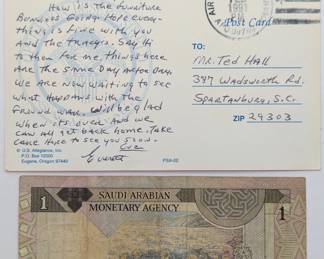 How is the furniture
Business Going? Hope every-
thing is fine with you
and the Tracys. Say Hi
to them for me. Things here
are the same day after day.
We are now waiting to see
what happens with the
ground war. Will be glad
when it's over and we
can all get back home. Take
care Hope to see you soon.
Luv
Everett
© U.S. Allegiance, Inc.
P.O. Box 12000
Eugene, Oregon 97440
PSA-02
AIR
1991
Post Card
TO:
Mr. Ted Hall
387 Wadsworth Rd.
Spartanburg, S.C.
ZIP 29303
1
SAUDI ARABIAN
MONETARY AGENCY
1